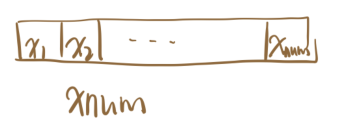 x₁ x₂ --- xnum
xnum